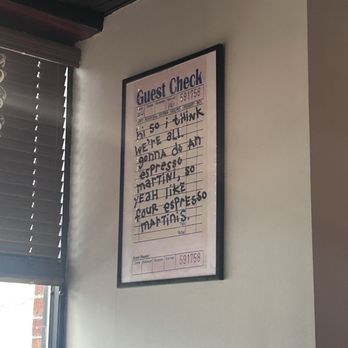 Guest Check
591758
hi so i think
WE'RE ALL
gonna do an
espresso
martini, so
yeah like
four espresso
martinis.
591758